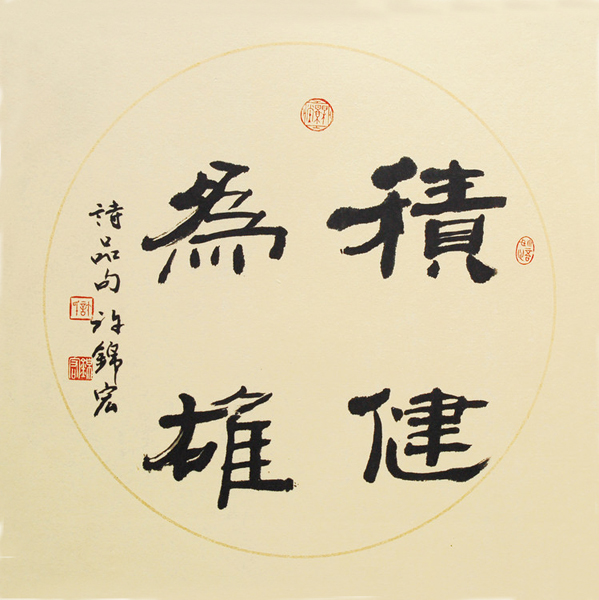 積健
為雄
詩品句许錦宏